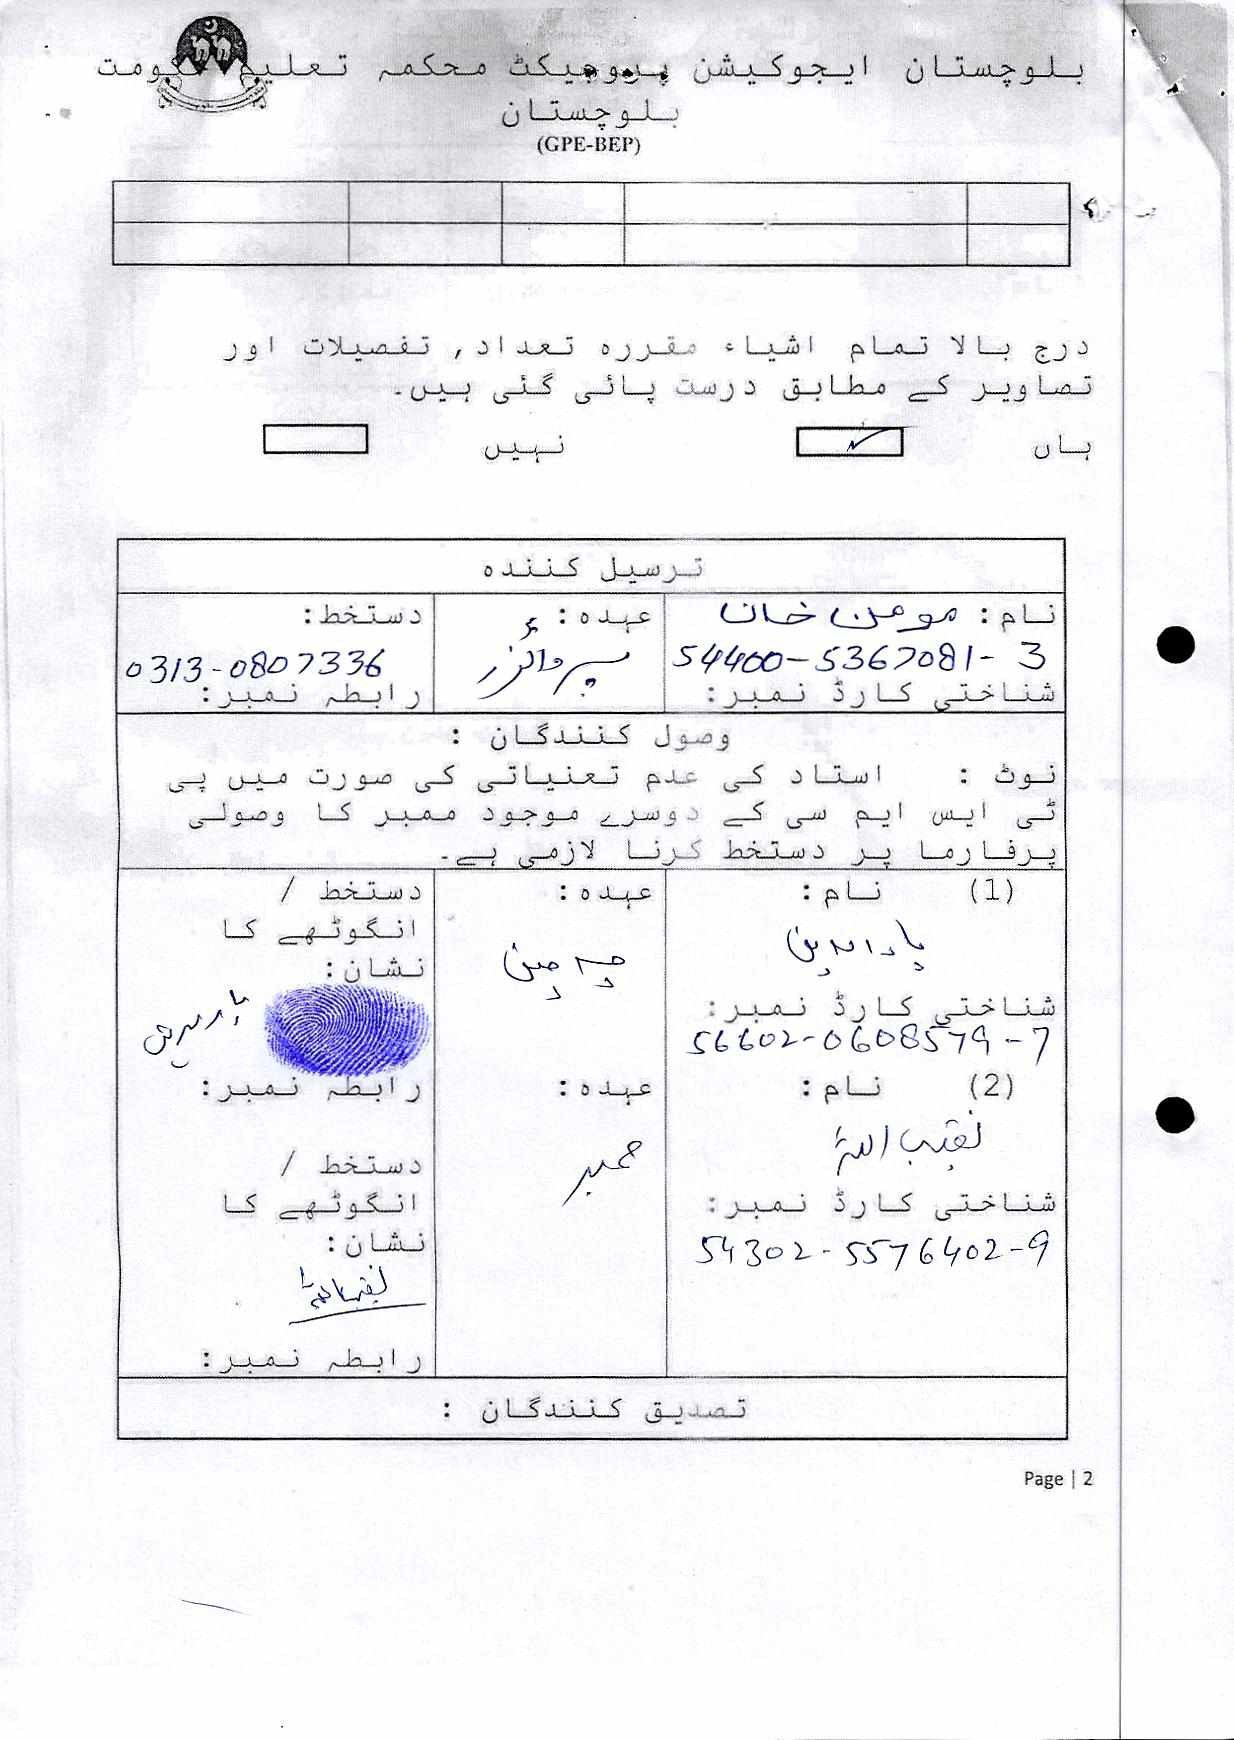 بلوچستان ایجوکیشن پروجیکٹ محکمہ تعلیم حکومت
بلوچستان
(GPE-BEP)
درج بالا تمام اشیاء مقررہ تعداد, تفصیلات اور
تصاویر کے مطابق درست پائی گئی ہیں۔
ہاں نہیں
ترسیل کنندہ
نام: مومن خان
54400-5367081-3
شناختی کارڈ نمبر:
عہدہ:
سپروائزر
دستخط:
0313-0807336
رابطہ نمبر:
وصول کنندگان :
نوٹ : استاد کی عدم تعنیاتی کی صورت میں پی
ٹی ایس ایم سی کے دوسرے موجود ممبر کا وصولی
پرفارما پر دستخط کرنا لازمی ہے۔
(1) نام:
شناختی کارڈ نمبر:
56602-0608579-7
عہدہ:
چیرمین
دستخط /
انگوٹھے کا
نشان:
رابطہ نمبر:
(2) نام:
نقیب اللہ
شناختی کارڈ نمبر:
54302-5576402-9
عہدہ:
ممبر
دستخط /
انگوٹھے کا
نشان:
نقیب اللہ
رابطہ نمبر:
تصدیق کنندگان :
Page | 2